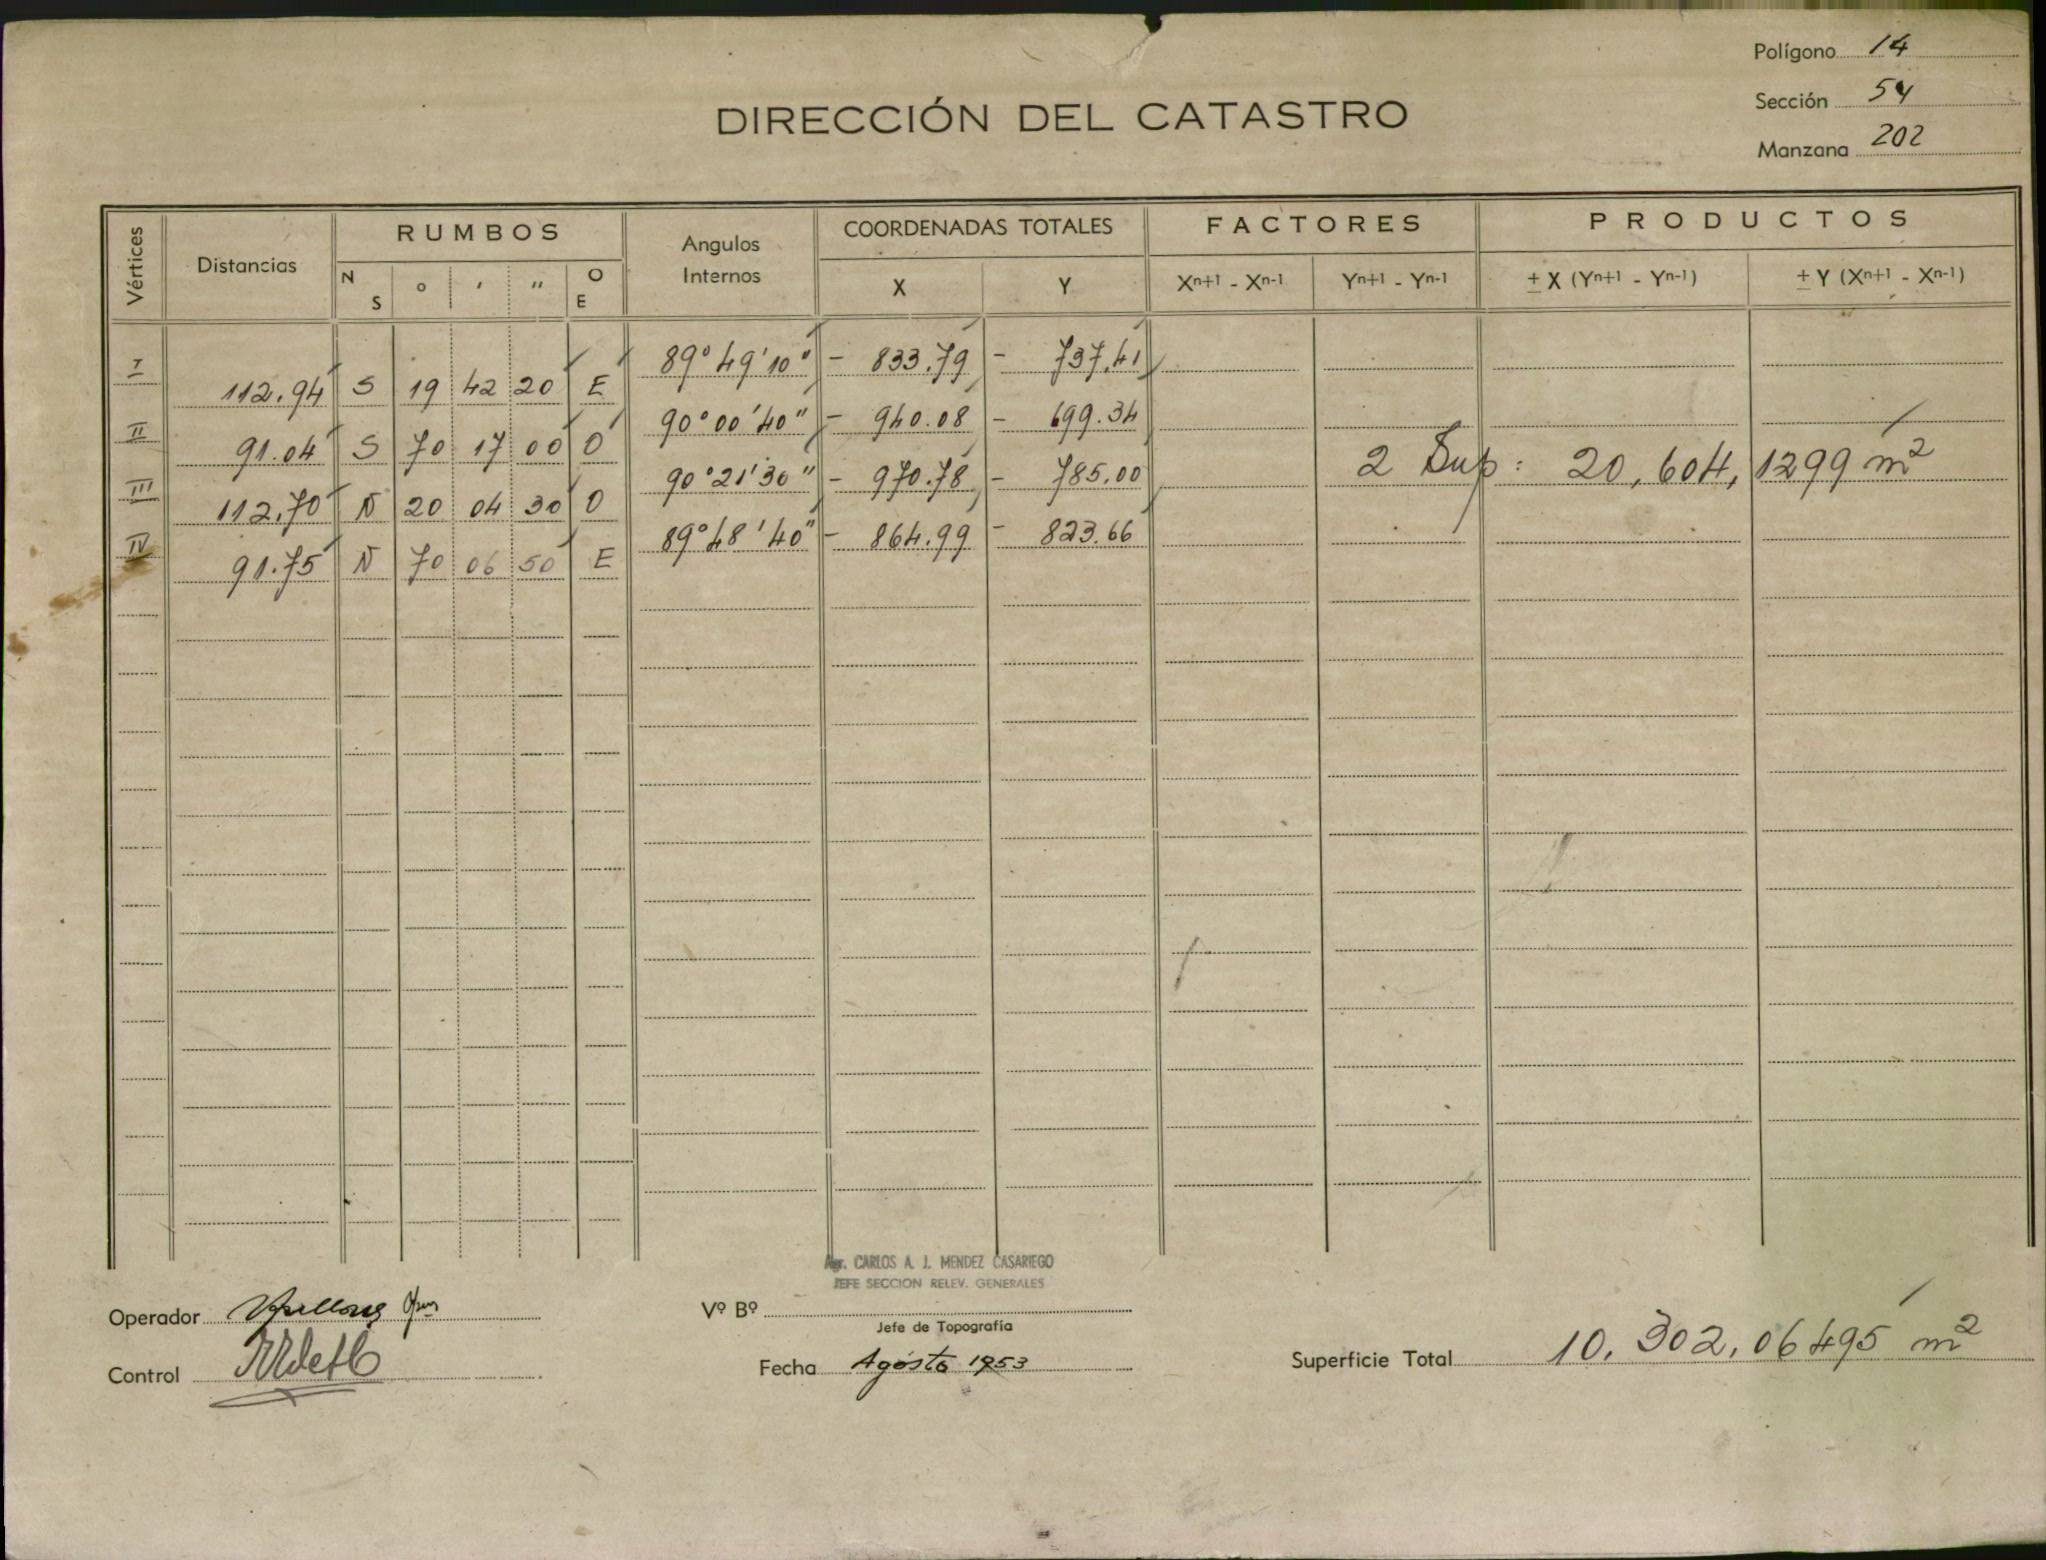 Polígono 14
Sección 54
Manzana 202
DIRECCIÓN DEL CATASTRO
Vértices Distancias RUMBOS Angulos Internos COORDENADAS TOTALES FACTORES PRODUCTOS
N S o ' '' O E X Y Xn+1 - Xn-1 Yn+1 - Yn-1 ± X (Yn+1 - Yn-1) ± Y (Xn+1 - Xn-1)
I 89° 49' 10" - 833.79 - 737.41
112.94 S 19 42 20 E
II 90° 00' 40" - 940.08 - 699.34
91.04 S 70 17 00 O
2 Sup: 20,604,1299 m²
III 90° 21' 30" - 970.78 - 785.00
112.70 N 20 04 30 O
IV 89° 48' 40" - 864.99 - 823.66
91.75 N 70 06 50 E
Agr. CARLOS A. J. MENDEZ CASARIEGO
JEFE SECCION RELEV. GENERALES
Operador
Vº Bº
Jefe de Topografía
Control
Fecha Agosto 1953
Superficie Total 10.302,06495 m²